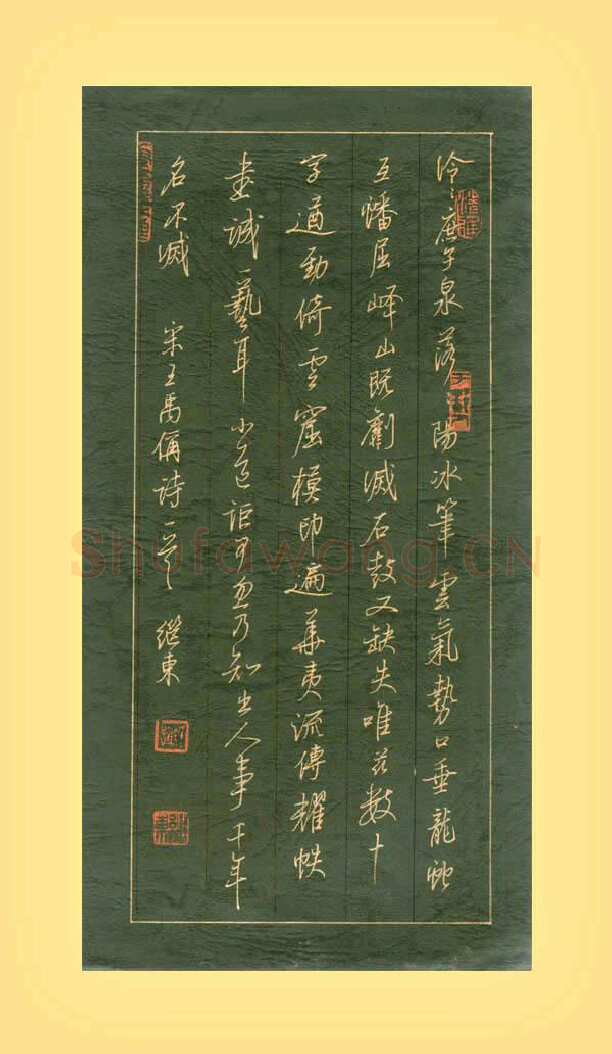 泠々庶子泉落陽冰筆雲氣勢口垂龍蛇
互蟠屈峄山既劘滅石鼓又缺失唯兹数十
字遒勁倚雲窟模印遍華夷流傳耀帙
書誠一藝耳小道詎可忽乃知出人事千年
名不滅 宋王禹偁詩一首 继東
Shufawang.CN